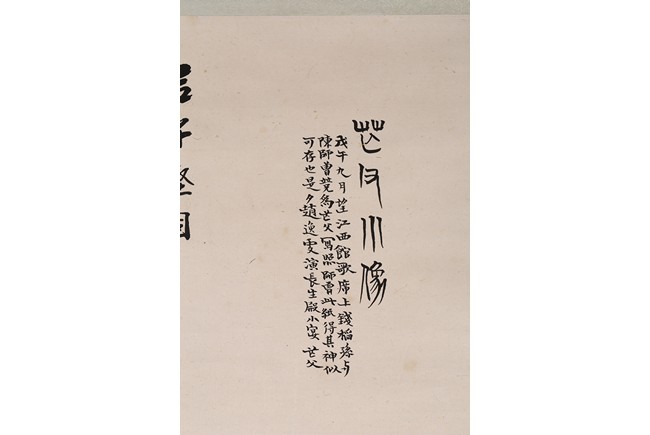 芒父小像
戊午九月望江西館歌席上錢稻孫与
陳師曾競為芒父寫照師曾此紙得其神似
可存也是夕趙逸雯演長生殿小宴 芒父